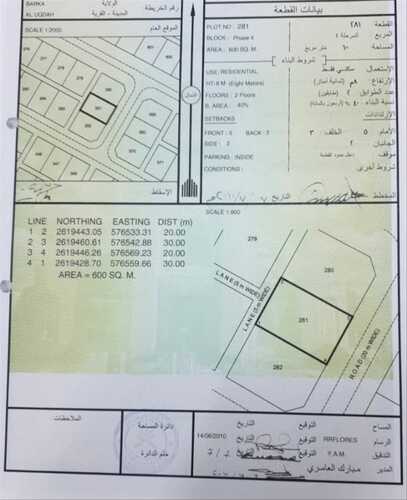 BARKA
الولاية
رقم الخريطة
AL UQDAH
المدينة - القرية
SCALE 1:2000
الموقع العام
الإسقاط
الشمال
بيانات القطعة
PLOT NO : 281
٢٨١
القطعة
BLOCK : Phase 4
المرحلة ٤
المربع
AREA : 600 SQ. M.
متر مربع
٦٠٠
المساحة
شروط البناء
USE : RESIDENTIAL
سكني فقط
الإستعمال
HT : 8 M (Eight Meters)
٨م (ثمانية أمتار)
الإرتفاع
FLOORS : 2 Floors
٢ (طابقين)
عدد الطوابق
B. AREA : 40%
٤٠٪ (أربعون بالمائة)
نسبة البناء
SETBACKS
الإرتدادات
FRONT : 5 BACK : 3
الأمام ٥ الخلف: ٣
SIDE : 2
الجانبان ٢
PARKING : INSIDE
داخل حدود القطعة
موقف
CONDITIONS :
شروط أخرى
المخطط
التاريخ
LINE NORTHING EASTING DIST (m)
1 2 2619443.05 576533.31 20.00
2 3 2619460.61 576542.88 30.00
3 4 2619446.26 576569.23 20.00
4 1 2619428.70 576559.66 30.00
AREA = 600 SQ. M.
SCALE 1:600
279
280
281
282
LANE (5 m WIDE)
LANE (5 m WIDE)
ROAD (20 m WIDE)
الملاحظات
دائرة المساحة
ختم الدائرة
التاريخ
التوقيع
المساح
14/06/2010
التاريخ
التوقيع
RRFLORES
الرسام
التاريخ
التوقيع
Y.A.M.
التدقيق
التاريخ
التوقيع
مبارك العاصري
المدير